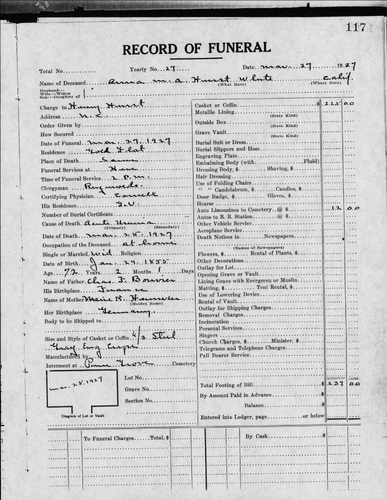 117
RECORD OF FUNERAL
Total No. Yearly No. 27 Date Mar. 27 1927
Name of Deceased Anna M. A. Hurst White Calif.
(What Race) (Where Born)
Husband—
Wife—Widow
Son—Daughter of
Charge to Harry Hurst
Address
Order Given by
How Secured
Date of Funeral Mar. 29, 1927
Residence Gold Flat
Place of Death Same
Funeral Services at Home
Time of Funeral Service 2 P.M.
Clergyman
Certifying Physician
His Residence
Number of Burial Certificate
Cause of Death Acute
(Primary) (Secondary)
Date of Death Mar. 25, 1927
Occupation of the Deceased at home
Single or Married Wid. Religion
Date of Birth Jan. 24, 1855
Age 72 Years 2 Months 1 Days
Name of Father Chas. F.
His Birthplace France
Name of Mother Marie K.
(Maiden Name)
Her Birthplace Germany
Body to be Shipped to
Size and Style of Casket or Coffin 6/3 Steel
Gray
Manufactured by
Interment at Pine Grove Cemetery
Mar. 28, 1927
Lot No.
Grave No.
Section No.
Diagram of Lot or Vault
Casket or Coffin $ 325 00
Metallic Lining
(State Kind)
Outside Box
(State Kind)
Grave Vault
(State Kind)
Burial Suit or Dress
Burial Slippers and Hose
Engraving Plate
Embalming Body (with Fluid)
Dressing Body, $ Shaving, $
Hair Dressing
Use of Folding Chairs
" " Candelabrum, $ Candles, $
Door Badge, $ Gloves, $
Hearse
Auto Limousines to Cemetery @ $ 12 00
Autos to R. R. Station @ $
Other Vehicle Service
Aeroplane Service
Death Notices in Newspapers
(Names of Newspapers)
Flowers, $ Rental of Plants, $
Other Decorations
Outlay for Lot
Opening Grave or Vault
Lining Grave with Evergreen or Muslin
Matting, $ Tent Rental, $
Use of Lowering Device
Rental of Vault
Outlay for Shipping Charges
Removal Charges
Incineration
Personal Services
Singers
Church Charges, $ Minister, $
Telegrams and Telephone Charges
Pall Bearer Service
Total Footing of Bill $ 337 00
By Amount Paid in Advance $
Balance $
Entered into Ledger, page or below
To Funeral Charges Total, $ By Cash $